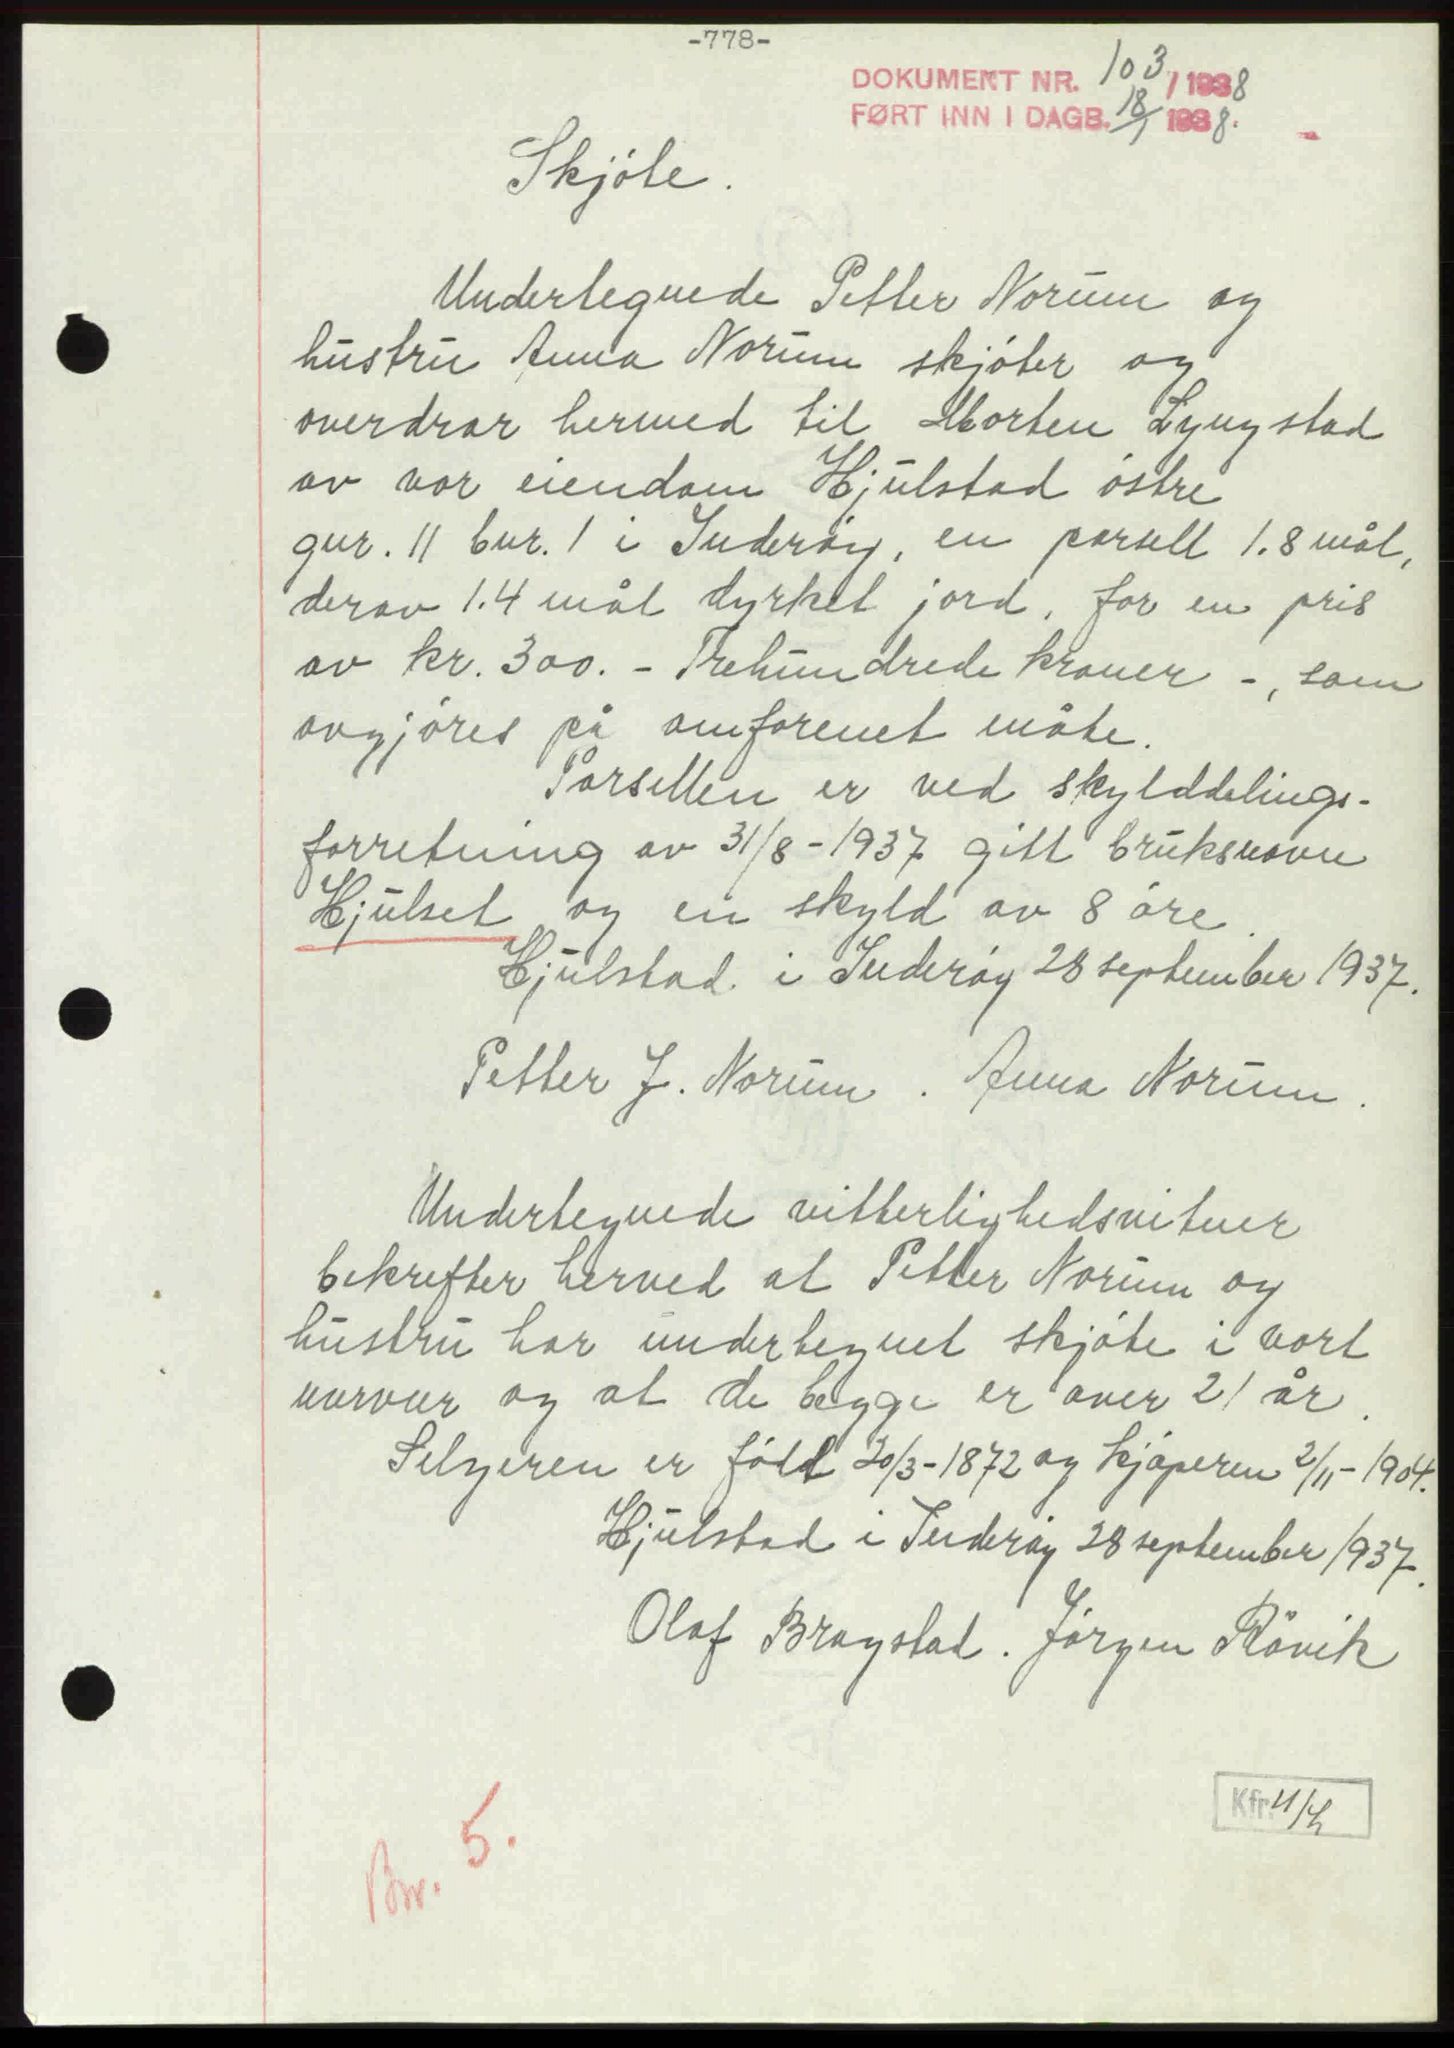 -778-
DOKUMENT NR. 103 / 1938
FØRT INN I DAGB. 18/1 1938.
Skjöte.
Undertegnede Petter Norum og
hustru Anna Norum skjöter og
overdrar hermed til Morten Lyngstad
av vor eiendom Hjulstad östre
gnr. 11 bnr. 1 i Inderöy, en parsell 1.8 mål,
derav 1.4 mål dyrket jord, for en pris
av kr. 300. - Trehundrede kroner -, som
avgjöres på omforenet måte.
Parsellen er ved skylddelings-
forretning av 31/8-1937 gitt bruksnavn
Hjulset og en skyld av 8 öre.
Hjulstad i Inderöy 28 september 1937.
Petter J. Norum. Anna Norum.
Undertegnede vitterlighedsvitner
bekrefter herved at Petter Norum og
hustru har undertegnet skjöte i vort
nærvær og at de begge er over 21 år.
Selgeren er född 20/3-1872 og kjöperen 2/11-1904.
Hjulstad i Inderöy 28 september 1937.
Olaf Bragstad. Jörgen Rövik
Kfr.
Bnr. 5.